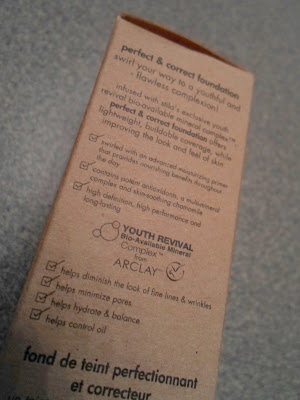 perfect & correct foundation
swirl your way to a youthful and
- flawless complexion!
infused with stila's exclusive youth
revival bio-available mineral complex™
perfect & correct foundation offers
lightweight, buildable coverage, while
improving the look and feel of skin
swirled with an advanced moisturizing primer
that provides nourishing benefits throughout
the day
contains potent antioxidants, a multimineral
complex and skin-soothing chamomile
high definition, high performance and
long-lasting
YOUTH REVIVAL
Bio-Available Mineral
Complex™
from
ARCLAY™
helps diminish the look of fine lines & wrinkles
helps minimize pores
helps hydrate & balance
helps control oil
fond de teint perfectionnant
et correcteur